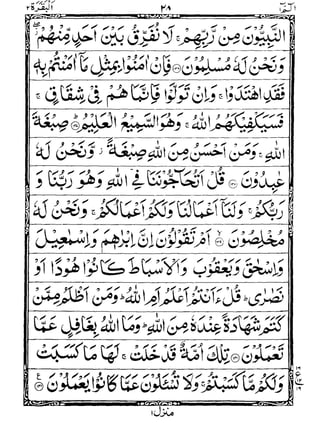 البقرة ٢
٢٨
الٓمّٓ ١
النَّبِيُّوْنَ مِنْ رَّبِّهِمْ ۚ لَا نُفَرِّقُ بَيْنَ اَحَدٍ مِّنْهُمْ ۖ
وَنَحْنُ لَهٗ مُسْلِمُوْنَ ﴿١٣٦﴾ فَاِنْ اٰمَنُوْا بِمِثْلِ مَاۤ اٰمَنْتُمْ بِهٖ
فَقَدِ اهْتَدَوْا ۚ وَاِنْ تَوَلَّوْا فَاِنَّمَا هُمْ فِيْ شِقَاقٍ ۚ
فَسَيَكْفِيْكَهُمُ اللّٰهُ ۚ وَهُوَ السَّمِيْعُ الْعَلِيْمُ ﴿١٣٧﴾ صِبْغَةَ
اللّٰهِ ۚ وَمَنْ اَحْسَنُ مِنَ اللّٰهِ صِبْغَةً ۫ وَّنَحْنُ لَهٗ
عٰبِدُوْنَ ﴿١٣٨﴾ قُلْ اَتُحَآجُّوْنَنَا فِي اللّٰهِ وَهُوَ رَبُّنَا وَ
رَبُّكُمْ ۚ وَلَنَاۤ اَعْمَالُنَا وَلَكُمْ اَعْمَالُكُمْ ۚ وَنَحْنُ لَهٗ
مُخْلِصُوْنَ ﴿١٣٩﴾ اَمْ تَقُوْلُوْنَ اِنَّ اِبْرٰهٖمَ وَاِسْمٰعِيْلَ
وَاِسْحٰقَ وَيَعْقُوْبَ وَالْاَسْبَاطَ كَانُوْا هُوْدًا اَوْ
نَصٰرٰى ؕ قُلْ ءَاَنْتُمْ اَعْلَمُ اَمِ اللّٰهُ ؕ وَمَنْ اَظْلَمُ مِمَّنْ
كَتَمَ شَهَادَةً عِنْدَهٗ مِنَ اللّٰهِ ؕ وَمَا اللّٰهُ بِغَافِلٍ عَمَّا
تَعْمَلُوْنَ ﴿١٤٠﴾ تِلْكَ اُمَّةٌ قَدْ خَلَتْ ۚ لَهَا مَا كَسَبَتْ
وَلَكُمْ مَّا كَسَبْتُمْ ۚ وَلَا تُسْـَٔلُوْنَ عَمَّا كَانُوْا يَعْمَلُوْنَ ﴿١٤١﴾
منزل ١